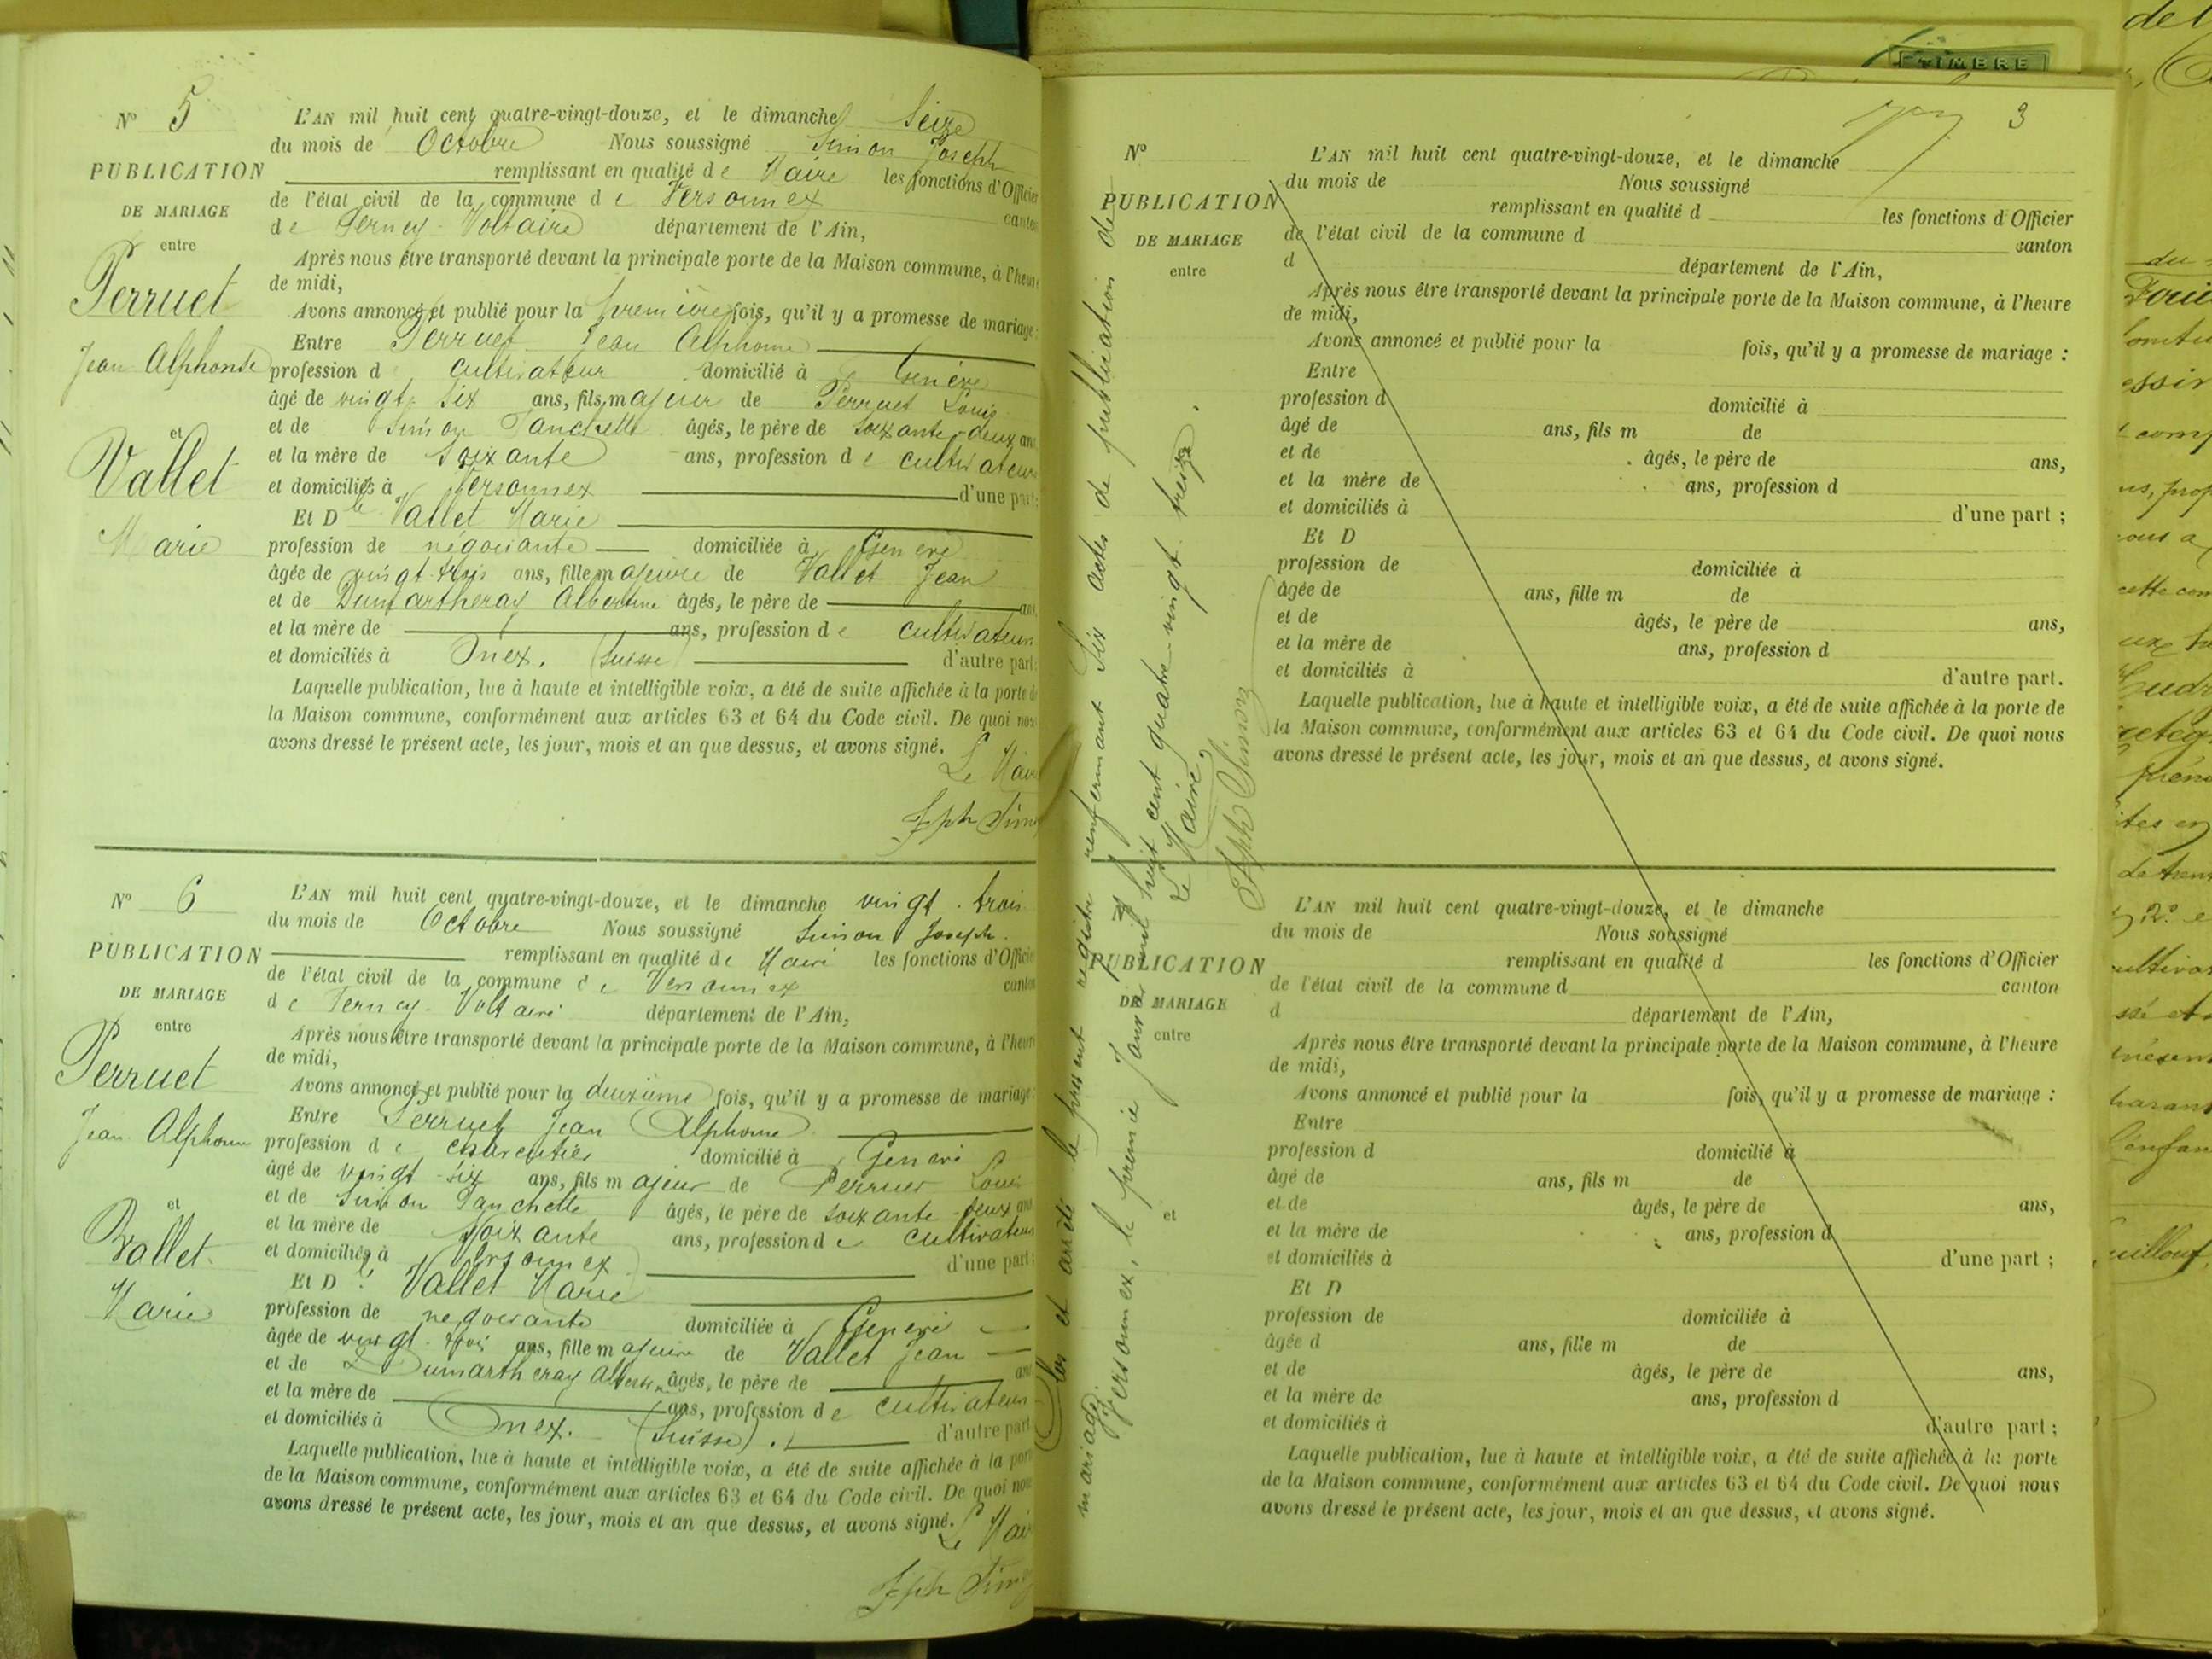 N° 5
PUBLICATION
DE MARIAGE
entre
Perruet
Jean Alphonse
et
Vallet
Marie
L'AN mil huit cent quatre-vingt-douze, et le dimanche Seize
du mois de Octobre Nous soussigné Simon Joseph
remplissant en qualité de Maire les fonctions d'Officier
de l'état civil de la commune de Versonnex canton
de Ferney-Voltaire département de l'Ain,
Après nous être transporté devant la principale porte de la Maison commune, à l'heure
de midi,
Avons annoncé et publié pour la première fois, qu'il y a promesse de mariage:
Entre Perruet Jean Alphonse
profession d cultivateur domicilié à Genève
âgé de vingt-six ans, fils majeur de Perruet Louis
et de Simon Panchette âgés, le père de soixante-deux ans
et la mère de soixante ans, profession de cultivateurs
et domiciliés à Versonnex d'une part;
Et Dlle Vallet Marie
profession de négociante domiciliée à Genève
âgée de vingt-trois ans, fille majeure de Vallet Jean
et de Dumartheray Albertine âgés, le père de ans
et la mère de ans, profession de cultivateurs
et domiciliés à Onex. (Suisse) d'autre part:
Laquelle publication, lue à haute et intelligible voix, a été de suite affichée à la porte de
la Maison commune, conformément aux articles 63 et 64 du Code civil. De quoi nous
avons dressé le présent acte, les jour, mois et an que dessus, et avons signé.
Le Mair
Jph Simo
N° 6
PUBLICATION
DE MARIAGE
entre
Perruet
Jean Alphonse
et
Vallet
Marie
L'AN mil huit cent quatre-vingt-douze, et le dimanche vingt-trois
du mois de Octobre Nous soussigné Simon Joseph.
remplissant en qualité de Maire les fonctions d'Officier
de l'état civil de la commune de Versonnex canton
de Ferney-Voltaire département de l'Ain,
Après nous être transporté devant la principale porte de la Maison commune, à l'heure
de midi,
Avons annoncé et publié pour la deuxième fois, qu'il y a promesse de mariage:
Entre Perruet Jean Alphonse
profession de domicilié à Genève
âgé de vingt-six ans, fils majeur de Perruet Louis
et de Simon Panchette âgés, le père de soixante-deux ans
et la mère de soixante ans, profession de cultivateurs
et domiciliés à Versonnex d'une part;
Et Dlle Vallet Marie
profession de négociante domiciliée à Genève
âgée de vingt-trois ans, fille majeure de Vallet Jean
et de Dumartheray Albertine âgés, le père de ans
et la mère de ans, profession de cultivateurs
et domiciliés à Onex. (Suisse). d'autre part
Laquelle publication, lue à haute et intelligible voix, a été de suite affichée à la porte
de la Maison commune, conformément aux articles 63 et 64 du Code civil. De quoi nous
avons dressé le présent acte, les jour, mois et an que dessus, et avons signé.
Le Mair
Jph Sim
TIMBRE
3
Clos et arrêté le présent registre renfermant six actes de publication de
mariage.
Versonnex, le premier Janvier mil huit cent quatre-vingt treize.
Le Maire,
Jph Simon
N°
PUBLICATION
DE MARIAGE
entre
L'AN mil huit cent quatre-vingt-douze, et le dimanche
du mois de Nous soussigné
remplissant en qualité d les fonctions d'Officier
de l'état civil de la commune d canton
d département de l'Ain,
Après nous être transporté devant la principale porte de la Maison commune, à l'heure
de midi,
Avons annoncé et publié pour la fois, qu'il y a promesse de mariage :
Entre
profession d domicilié à
âgé de ans, fils m de
et de âgés, le père de ans,
et la mère de ans, profession d
et domiciliés à d'une part ;
Et D
profession de domiciliée à
âgée de ans, fille m de
et de âgés, le père de ans,
et la mère de ans, profession d
et domiciliés à d'autre part.
Laquelle publication, lue à haute et intelligible voix, a été de suite affichée à la porte de
la Maison commune, conformément aux articles 63 et 64 du Code civil. De quoi nous
avons dressé le présent acte, les jour, mois et an que dessus, et avons signé.
N°
PUBLICATION
DE MARIAGE
entre
et
L'AN mil huit cent quatre-vingt-douze, et le dimanche
du mois de Nous soussigné
remplissant en qualité d les fonctions d'Officier
de l'état civil de la commune d canton
d département de l'Ain,
Après nous être transporté devant la principale porte de la Maison commune, à l'heure
de midi,
Avons annoncé et publié pour la fois, qu'il y a promesse de mariage :
Entre
profession d domicilié à
âgé de ans, fils m de
et de âgés, le père de ans,
et la mère de ans, profession d
et domiciliés à d'une part ;
Et D
profession de domiciliée à
âgée d ans, fille m de
et de âgés, le père de ans,
et la mère de ans, profession d
et domiciliés à d'autre part ;
Laquelle publication, lue à haute et intelligible voix, a été de suite affichée à la porte
de la Maison commune, conformément aux articles 63 et 64 du Code civil. De quoi nous
avons dressé le présent acte, les jour, mois et an que dessus, et avons signé.